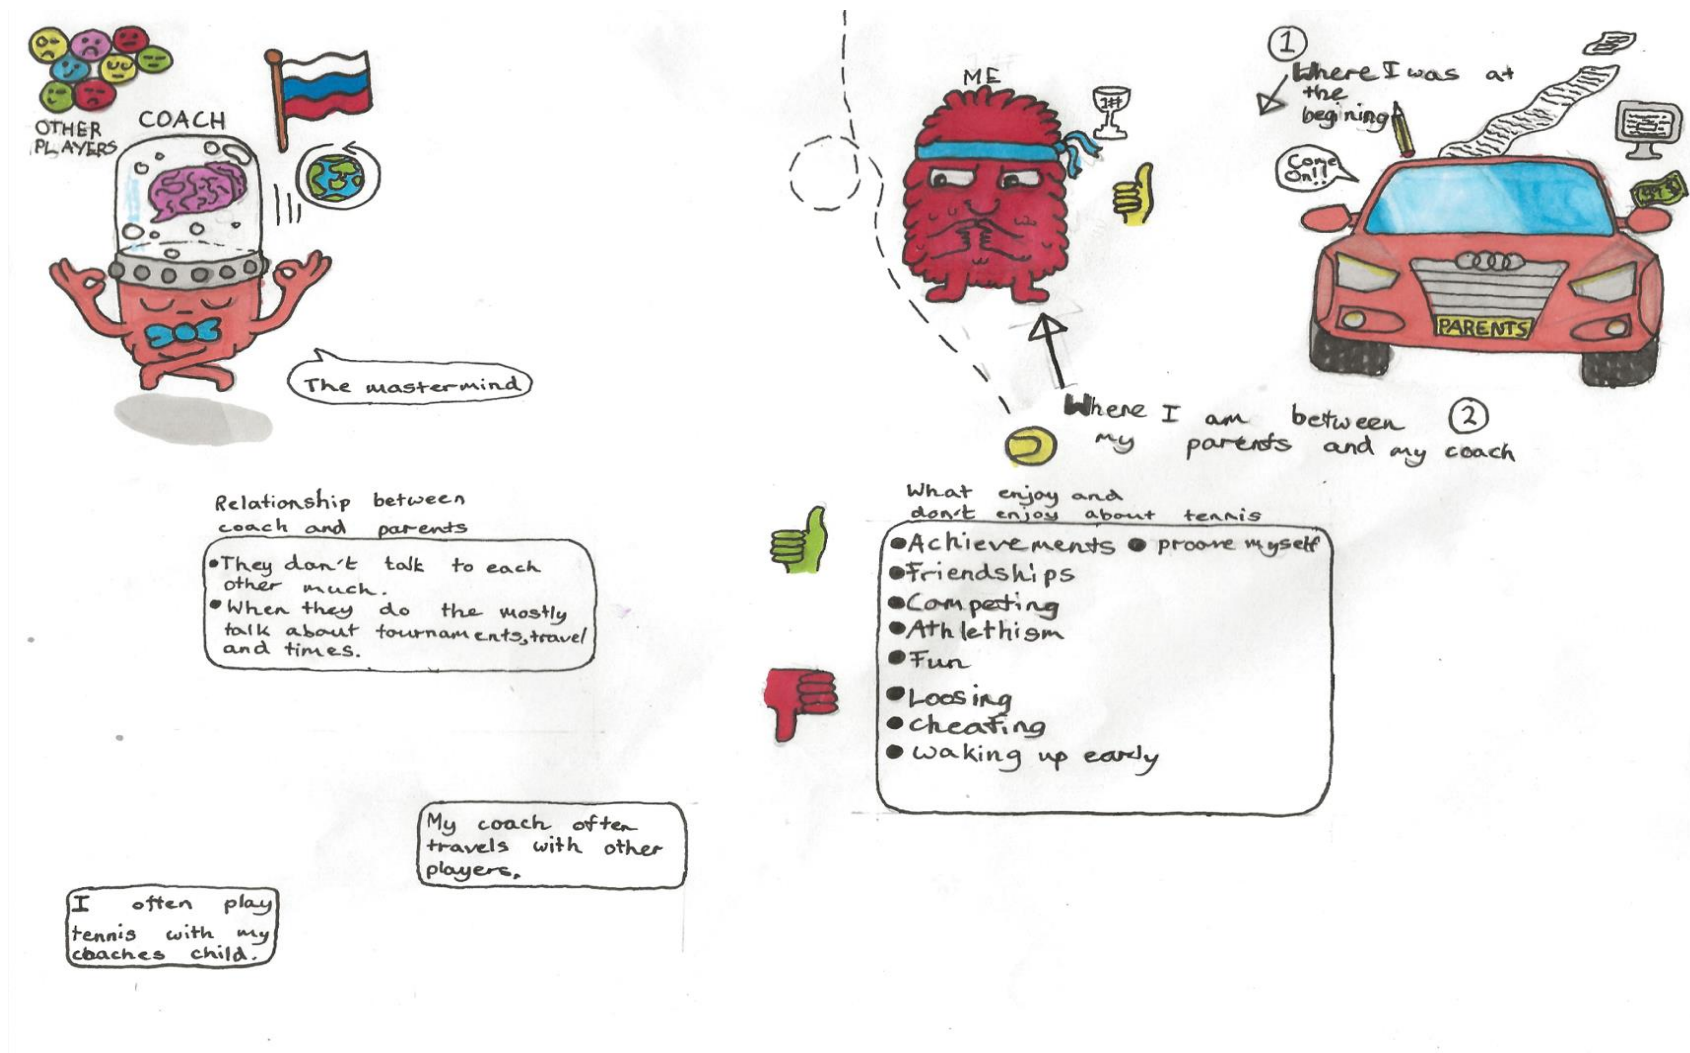 OTHER
PLAYERS
COACH
The mastermind
ME
1#
1
Where I was at
the
begining
Come
On!!
PARENTS
Where I am between 2
my parents and my coach
Relationship between
coach and parents
•They don't talk to each
other much.
•When they do the mostly
talk about tournaments,travel
and times.
What enjoy and
don't enjoy about tennis
•Achievements • proove myself
•Friendships
•Competing
•Athlethism
•Fun
•Loosing
•cheating
•waking up early
My coach often
travels with other
players.
I often play
tennis with my
coaches child.